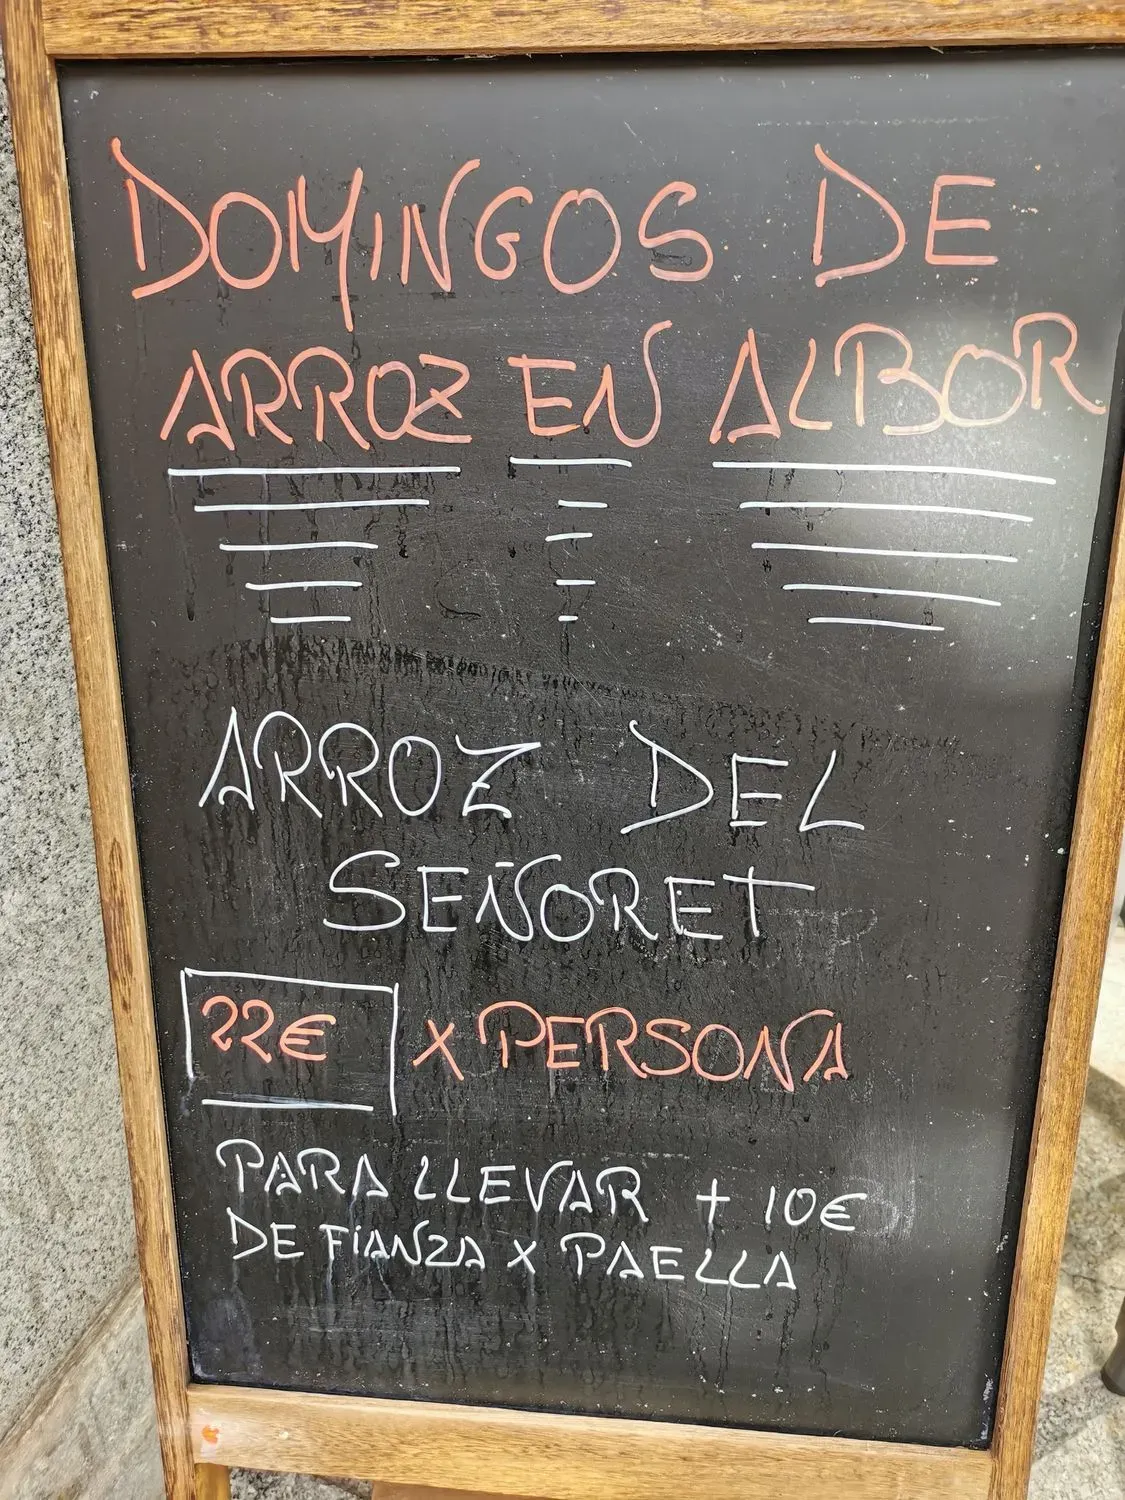 DOMINGOS DE
ARROZ EN ALBOR
ARROZ DEL
SEÑORET
22€ X PERSONA
PARA LLEVAR + 10€
DE FIANZA X PAELLA